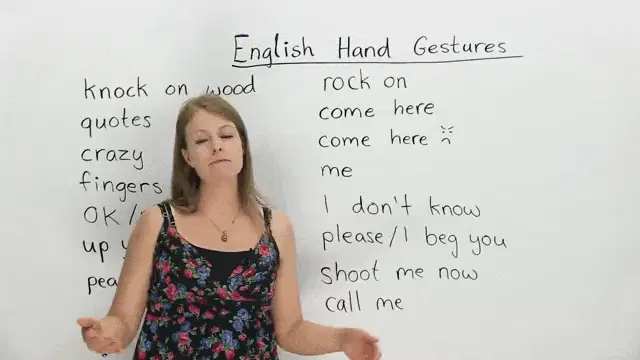 English Hand Gestures
knock on wood
quotes
crazy
fingers
OK/
up
rock on
come here
come here
me
I don't know
please/I beg you
shoot me now
call me